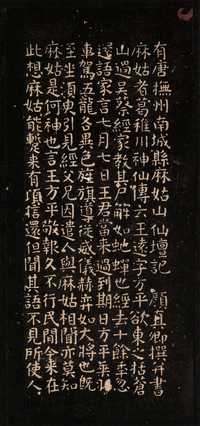 有唐撫州南城縣麻姑山仙壇記 顏真卿撰并書
麻姑者葛稚川神仙傳云王遠字方平欲東之括蒼
山過吳蔡經家教其尸解如蛇蟬也經去十餘年忽
還語家言七月七日王君當來過到期日方平乘羽
車駕五龍各異色旌旗導從威儀赫弈如大將也既
至坐須臾引見經父兄因遣人與麻姑相聞亦莫知
麻姑是何神也言王方平敬報久不行民間今來在
此想麻姑能蹔來有頃信還但聞其語不見所使人